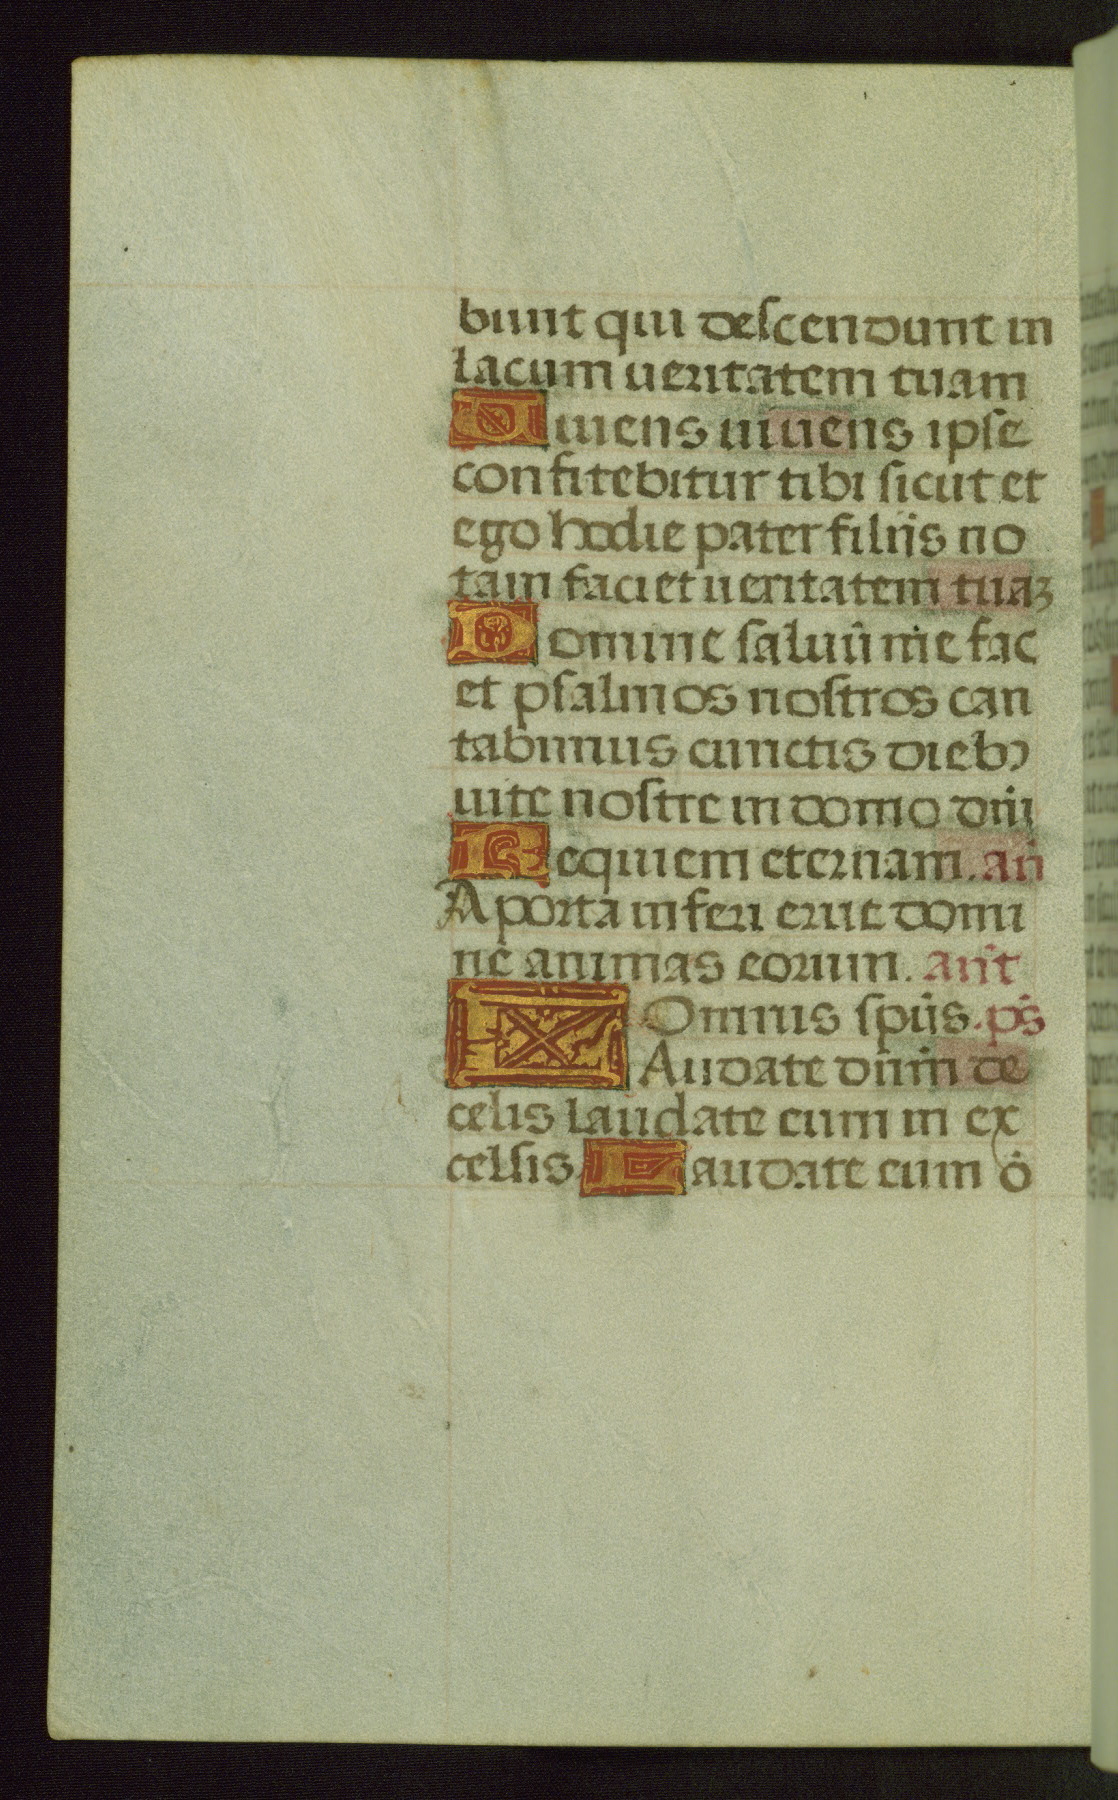 bunt qui descendunt in
lacum ueritatem tuam
Uiuens uiuens ipse
confitebitur tibi sicut et
ego hodie pater filiis no
tam faciet ueritatem tuaꝫ
Domine saluū me fac
et psalmos nostros can
tabimus cunctis dieb9
uite nostre in domo dnī
Requiem eternam. an̄
A porta inferi erue domi
ne animas eorum. ant̄
Omnis spūs. ps̄
LAudate dūm de
celis laudate eum in ex
celsis Laudate eum ō